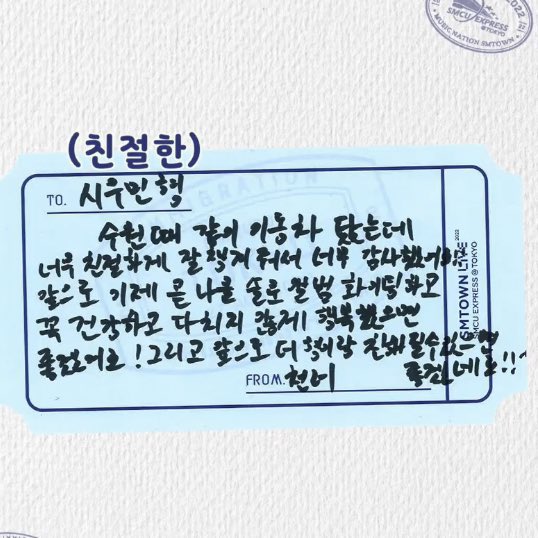 2022
SMCU EXPRESS
@TOKYO
MUSIC NATION SMTOWN
(친절한)
TO. 시우민 형
수원 때 같이 이동차 탔는데
너무 친절하게 잘 챙겨 줘서 너무 감사했어요!!
앞으로 이제 곧 나올 솔로 앨범 화이팅하고
꼭 건강하고 다치지 않게 행복했으면
좋겠어요! 그리고 앞으로 더 형이랑 친해질수있으면
좋겠네요!!^
FROM. 천러
SMTOWN LIVE 2022
SMCU EXPRESS @TOKYO